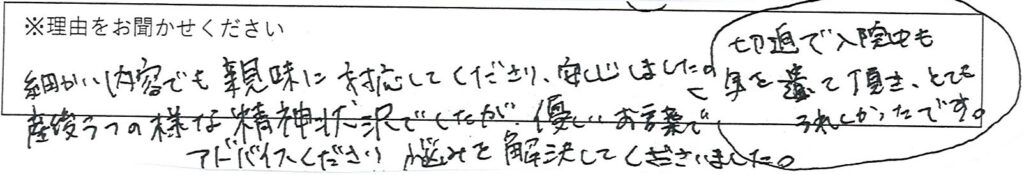 ※理由をお聞かせください
細かい内容でも親味に対応してくださり、安心しました。
産後うつの様な精神状況でしたが、優しいお言葉で
アドバイスくださり悩みを解決してくださいました。
切迫で入院中も
気を遣って頂き、とても
うれしかったです。